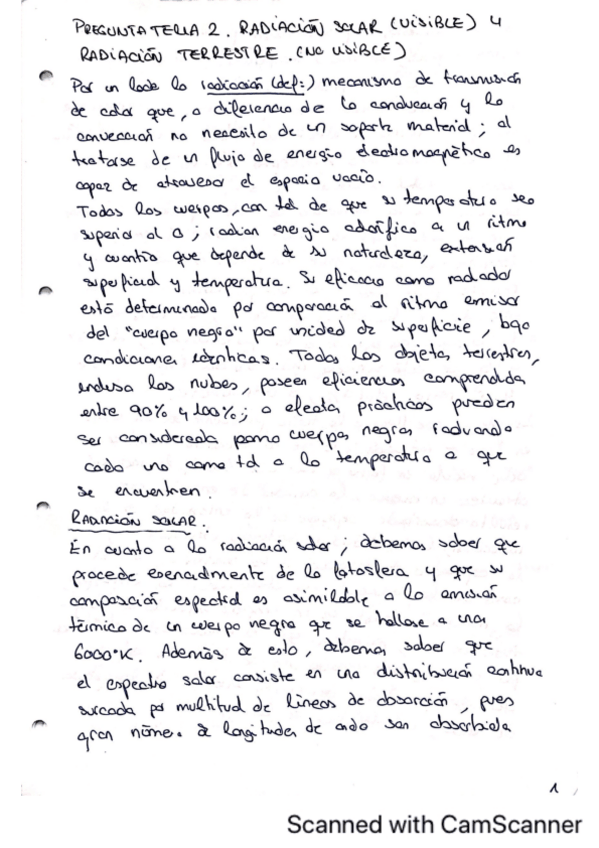 PREGUNTA TEMA 2. RADIACIÓN SOLAR (VISIBLE) Y
RADIACIÓN TERRESTRE. (NO VISIBLE)
Por un lado la radiación (def:) mecanismo de transmisión
de calor que, a diferencia de la conducción y la
convección no necesita de un soporte material; al
tratarse de un flujo de energía electromagnético es
capaz de atravesar el espacio vacío.
Todos los cuerpos, con tal de que su temperatura sea
superior al 0; radian energía calorífica a un ritmo
y cuantía que depende de su naturaleza, extensión
superficial y temperatura. Su eficacia como radiador
está determinada por comparación al ritmo emisor
del "cuerpo negro" por unidad de superficie, bajo
condiciones idénticas. Todos los objetos terrestres,
incluso las nubes, poseen eficiencias comprendida
entre 90% y 100%; a efectos prácticos pueden
ser considerada como cuerpos negros radiando
cada uno como tal a la temperatura a que
se encuentren.
RADIACIÓN SOLAR.
En cuanto a la radiación solar; debemos saber que
procede esencialmente de la fotosfera y que su
composición espectral es asimilable a la emisión
térmica de un cuerpo negro que se hallase a unos
6000°K. Además de esto, debemos saber que
el espectro solar consiste en una distribución continua
surcada por multitud de líneas de absorción, pues
gran núme. de longitudes de onda son absorbida
1
Scanned with CamScanner